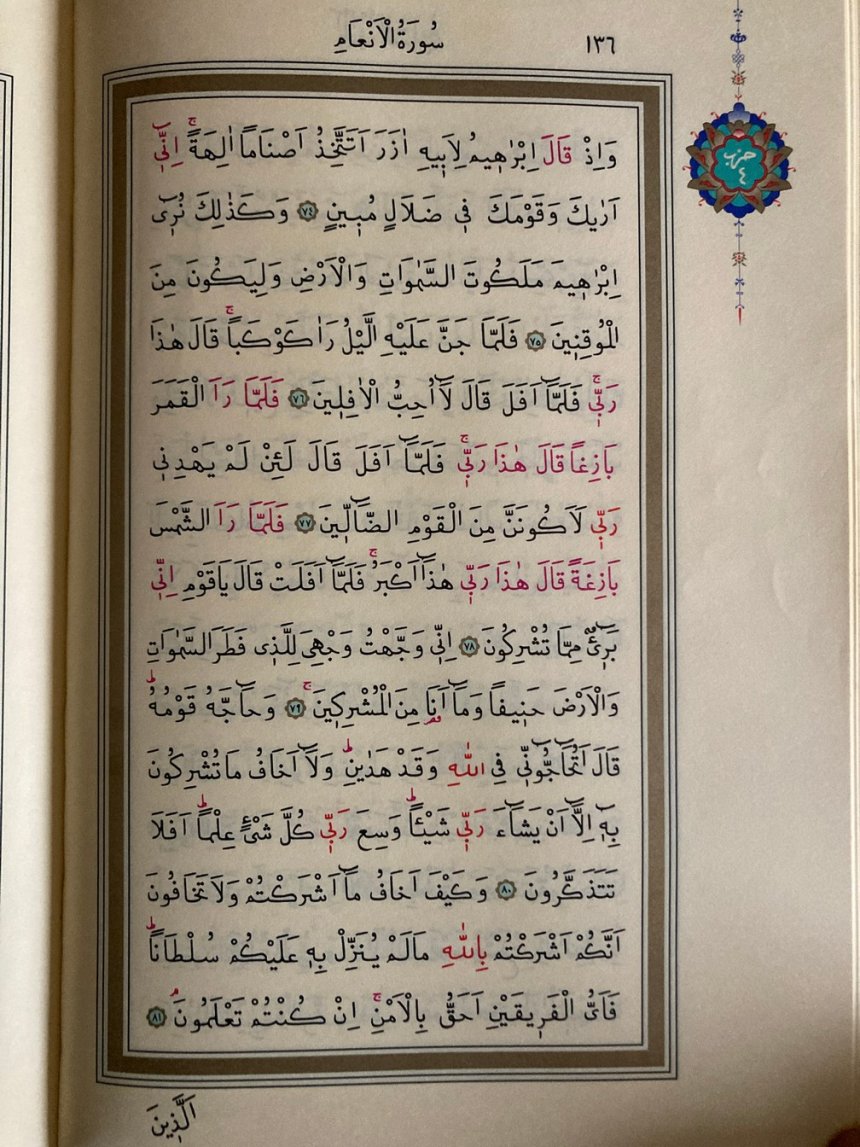 سُورَةُ الْاَنْعَامِ
١٣٦
حزب
٤
وَاِذْ قَالَ اِبْرٰه۪يمُ لِاَب۪يهِ اٰزَرَ اَتَتَّخِذُ اَصْنَامًا اٰلِهَةًۚ اِنّ۪ٓي
اَرٰيكَ وَقَوْمَكَ ف۪ي ضَلَالٍ مُب۪ينٍ ﴿٧٤﴾ وَكَذٰلِكَ نُر۪ٓي
اِبْرٰه۪يمَ مَلَكُوتَ السَّمٰوَاتِ وَالْاَرْضِ وَلِيَكُونَ مِنَ
الْمُوقِن۪ينَ ﴿٧٥﴾ فَلَمَّا جَنَّ عَلَيْهِ الَّيْلُ رَاٰ كَوْكَبًاۚ قَالَ هٰذَا
رَبّ۪يۚ فَلَمَّٓا اَفَلَ قَالَ لَٓا اُحِبُّ الْاٰفِل۪ينَ ﴿٧٦﴾ فَلَمَّا رَاَ الْقَمَرَ
بَازِغًا قَالَ هٰذَا رَبّ۪يۚ فَلَمَّٓا اَفَلَ قَالَ لَئِنْ لَمْ يَهْدِن۪ي
رَبّ۪ي لَاَكُونَنَّ مِنَ الْقَوْمِ الضَّٓالّ۪ينَ ﴿٧٧﴾ فَلَمَّا رَاَ الشَّمْسَ
بَازِغَةً قَالَ هٰذَا رَبّ۪ي هٰذَٓا اَكْبَرُۚ فَلَمَّٓا اَفَلَتْ قَالَ يَاقَوْمِ اِنّ۪ي
بَر۪ٓيءٌ مِمَّا تُشْرِكُونَ ﴿٧٨﴾ اِنّ۪ي وَجَّهْتُ وَجْهِيَ لِلَّذ۪ي فَطَرَ السَّمٰوَاتِ
وَالْاَرْضَ حَن۪يفًا وَمَٓا اَنَا۬ مِنَ الْمُشْرِك۪ينَۚ ﴿٧٩﴾ وَحَٓاجَّهُ قَوْمُهُۜ
قَالَ اَتُحَٓاجُّٓونّ۪ي فِي اللّٰهِ وَقَدْ هَدٰينِۜ وَلَٓا اَخَافُ مَا تُشْرِكُونَ
بِه۪ٓ اِلَّٓا اَنْ يَشَٓاءَ رَبّ۪ي شَيْـًٔاۜ وَسِعَ رَبّ۪ي كُلَّ شَيْءٍ عِلْمًاۜ اَفَلَا
تَتَذَكَّرُونَ ﴿٨٠﴾ وَكَيْفَ اَخَافُ مَٓا اَشْرَكْتُمْ وَلَا تَخَافُونَ
اَنَّكُمْ اَشْرَكْتُمْ بِاللّٰهِ مَا لَمْ يُنَزِّلْ بِه۪ عَلَيْكُمْ سُلْطَانًاۜ
فَاَيُّ الْفَر۪يقَيْنِ اَحَقُّ بِالْاَمْنِۚ اِنْ كُنْتُمْ تَعْلَمُونَۢ ﴿٨١﴾
اَلَّذ۪ينَ